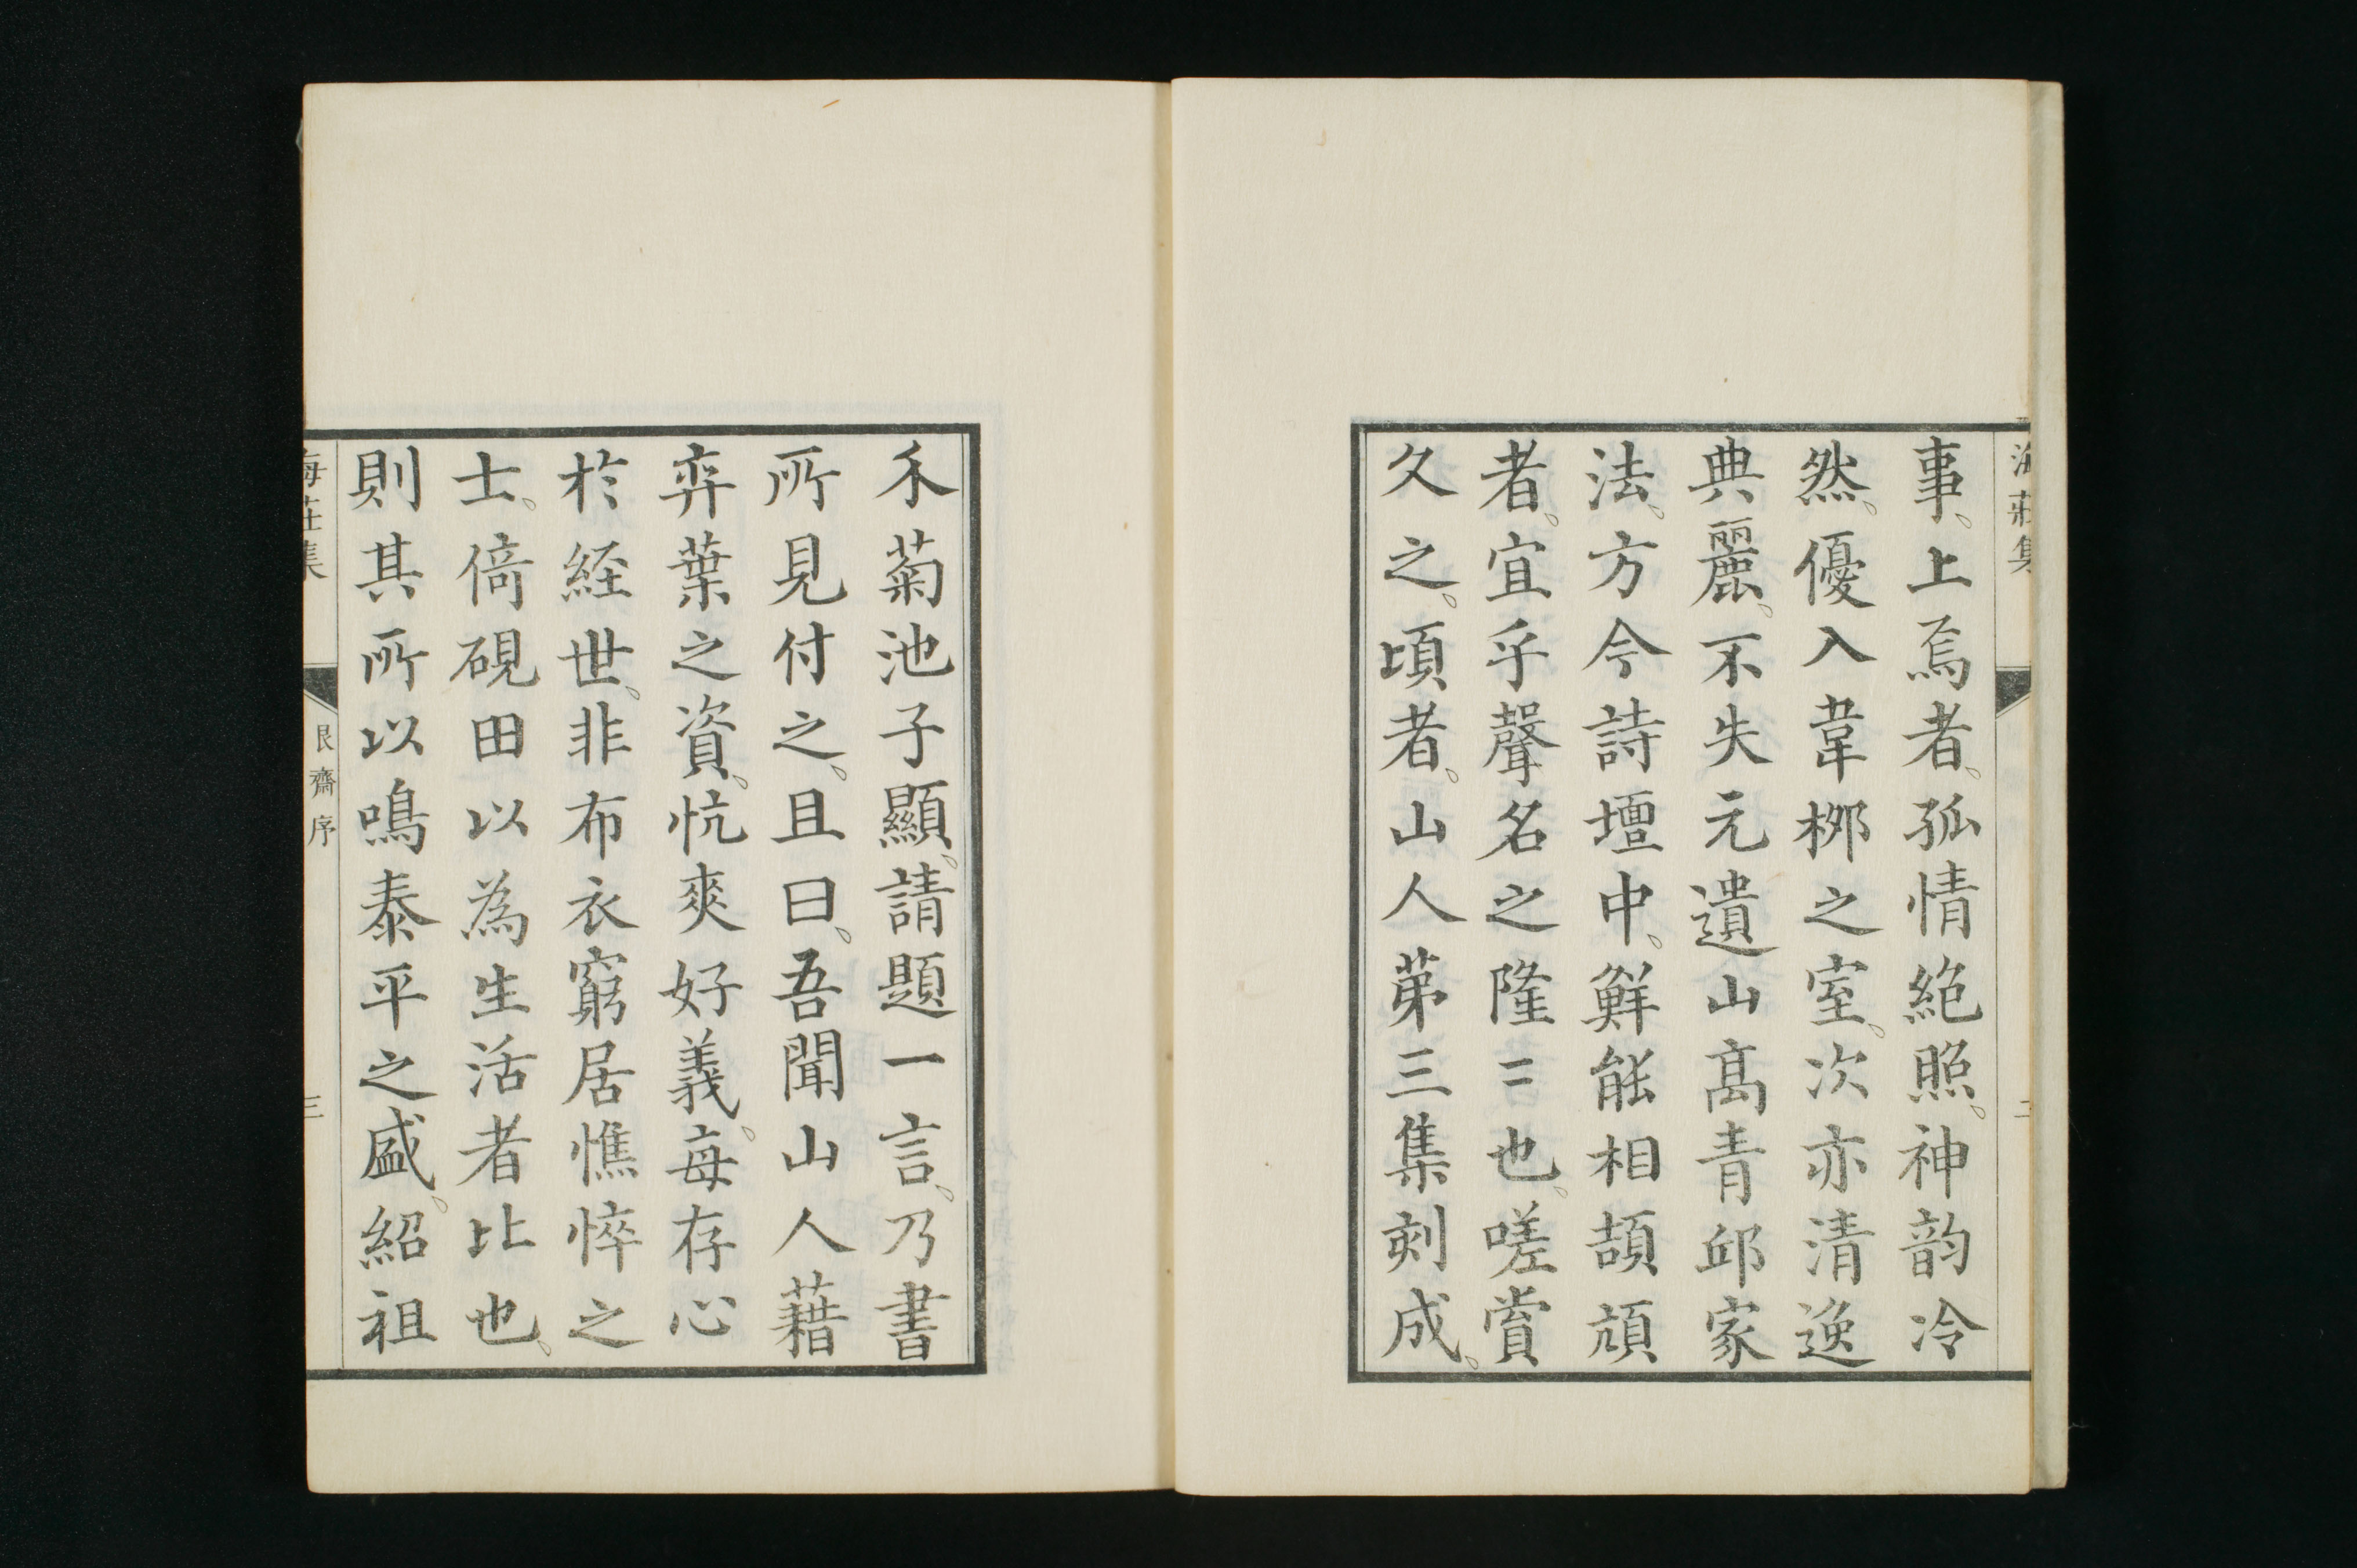 海莊集
二
事。上焉者。孤情絶照。神韵冷
然。優入韋桺之室。次亦清逸
典麗。不失元遺山髙青邱家
法。方今詩壇中。鮮能相頡頏
者。宜乎聲名之隆〻也。嗟賞
久之。頃者。山人第三集刻成。
禾菊池子顯。請題一言。乃書
所見付之。且曰。吾聞山人藉
弈葉之資。忼爽好義。每存心
於経世。非布衣窮居憔悴之
士。倚硯田以為生活者比也。
則其所以鳴泰平之盛。紹祖
海莊集
艮齋序
三